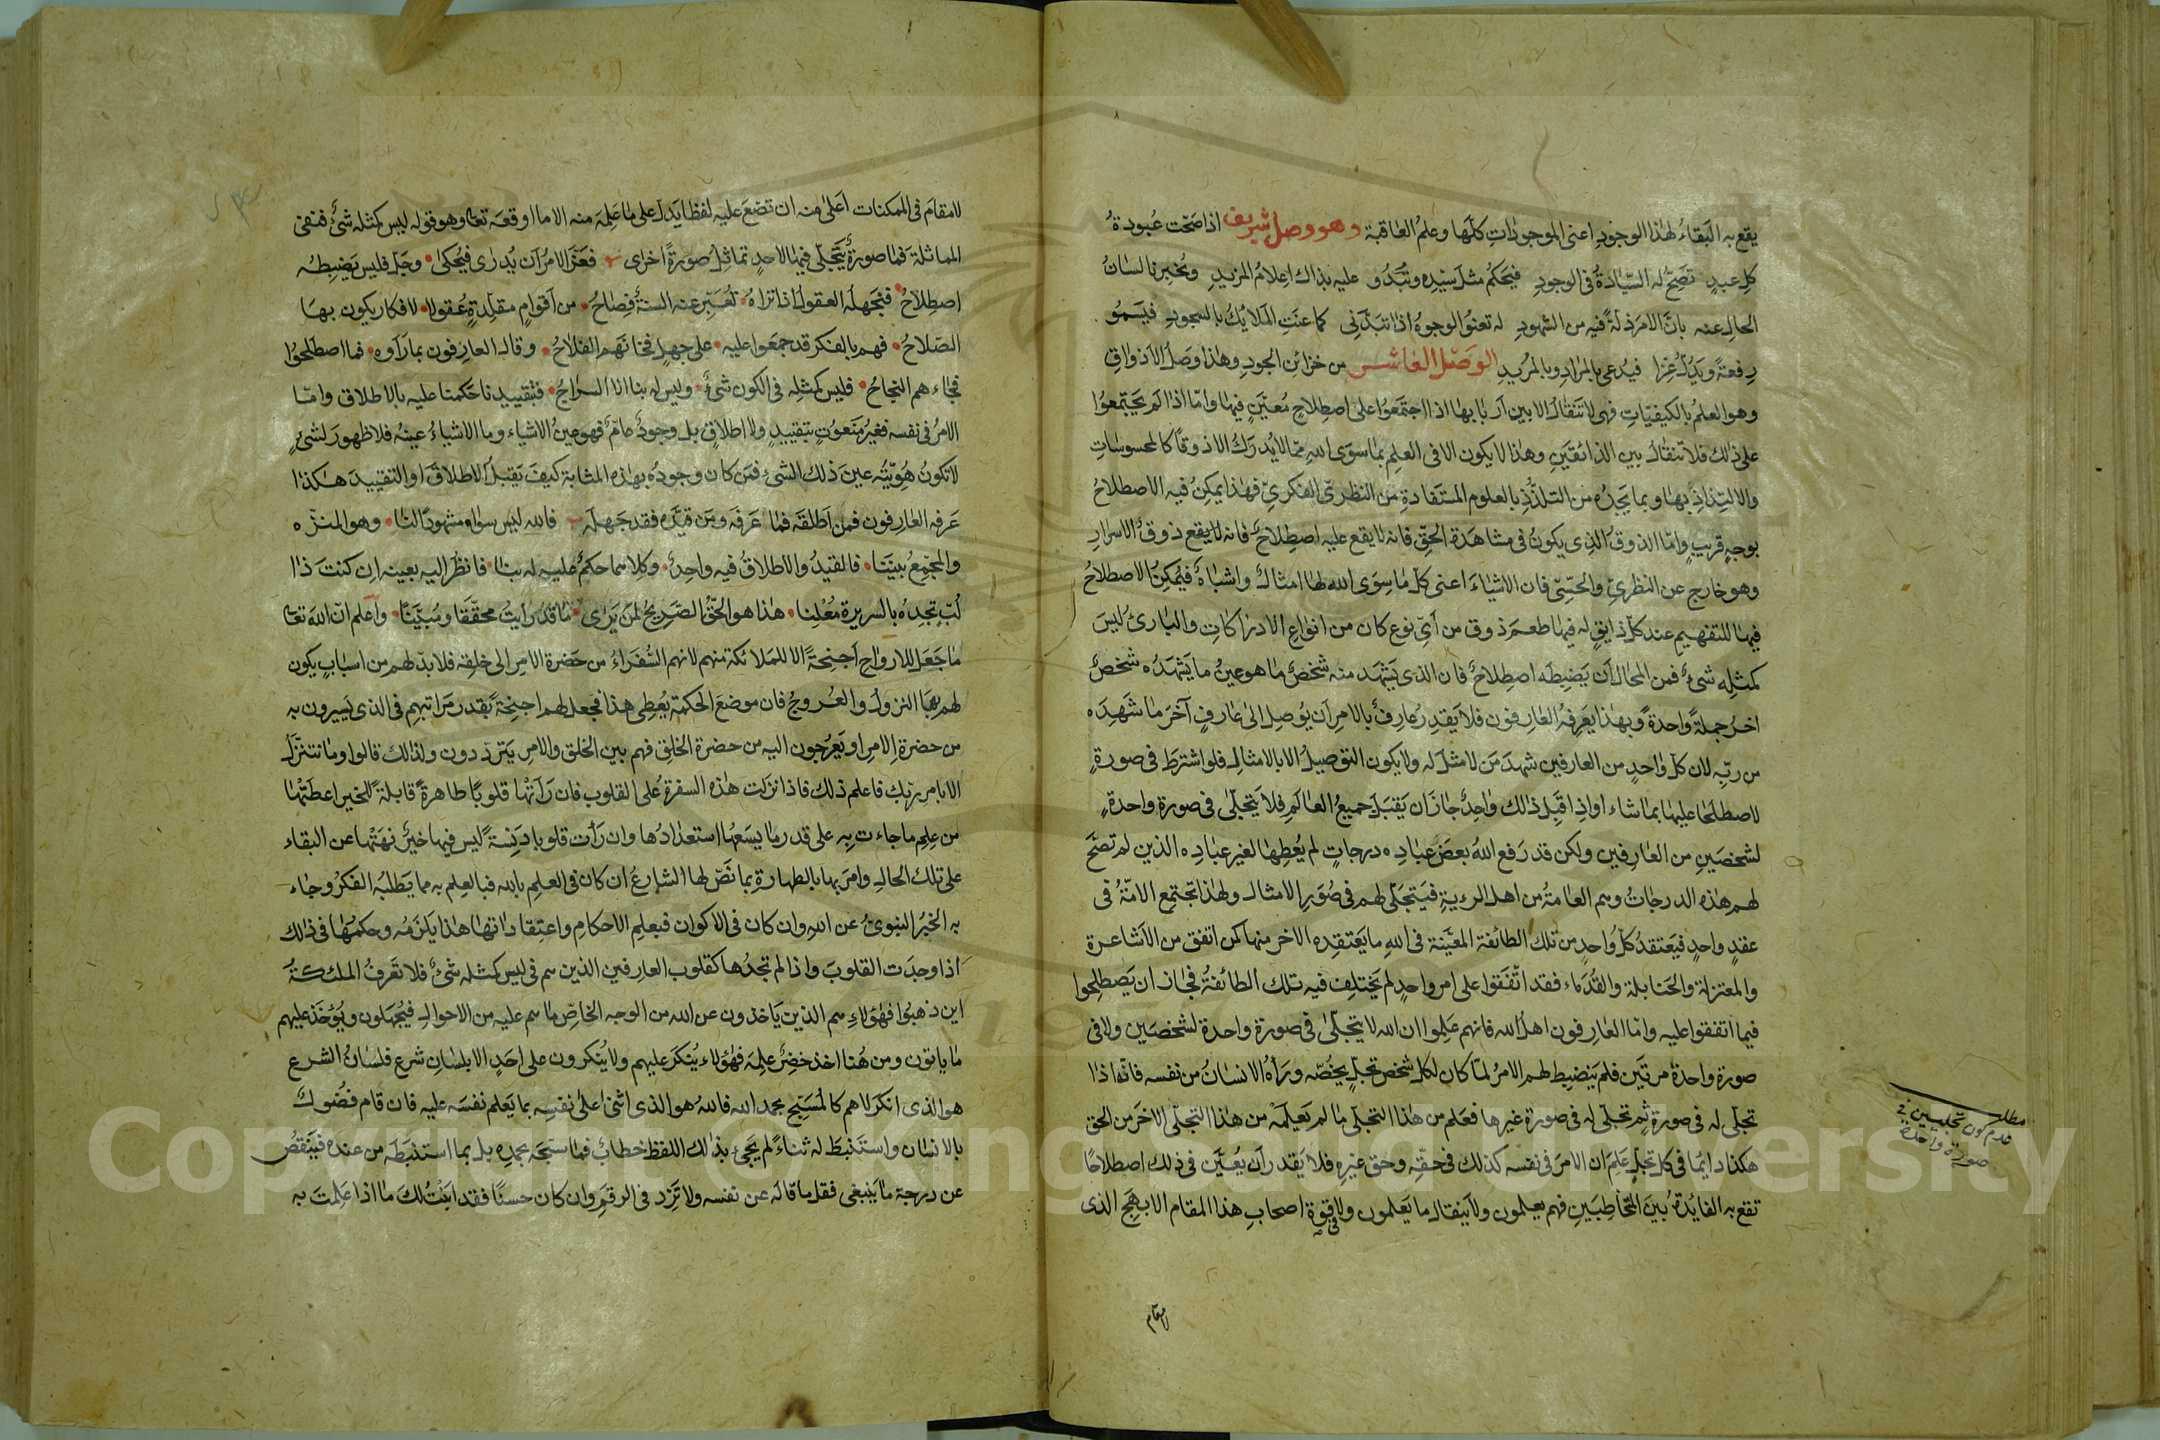 يقع به البقاء لهذا الوجود اعنى الموجودات كلها وعلم العاقبة وهو وصل شريف اذا صحت عبودة
كل عبد تصح له السيادة فى الوجود فيحكم مثل سيده وتبدو عليه بذاك اعلام المزيد ويخبرنا لسان
الحال عنه بان الامر ذلة فيه من الشهود له تعنو الوجوه اذا تبدّى كما عنت الملايك بالسجود فيسمو
رفعة ويذل عزا فيدعى بالمراد وبالمريد الوصل العاشر من خزائن الجود وهذا وصل الاذواق
وهو العلم بالكيفيات فهى لا تنقال الا بين اربابها اذا اجتمعوا على اصطلاح معين فيها واما اذا لم يجتمعوا
على ذلك فلا تنقال بين الذائقين وهذا لا يكون الا فى العلم بما سوى الله مما لا يدرك الا ذوقا كالمحسوسات
والالتذاذ بها وبما يجده من التلذذ بالعلوم المستفادة من النظر الفكرى فهذا يمكن فيه الاصطلاح
بوجه قريب واما الذوق الذى يكون فى مشاهدة الحق فانه لا يقع عليه اصطلاح فانه لا يقع ذوق الاسرار
وهو خارج عن النظرى والحسى فان الاشياء اعنى كل ما سوى الله لها امثال واشباه فيمكن الاصطلاح
فيها للتفهيم عند كل ذايق له فيها طعم ذوق من اى نوع كان من انواع الادراكات والبارئ ليس
كمثله شئ فمن المحال ان يضبطه اصطلاح فان الذى يشهد منه شخص ما هو عين ما يشهده شخص
اخر جملة واحدة وبهذا يعرفه العارفون فلا يقدر عارف بالامر ان يوصل الى عارف آخر ما شهده
من ربه لان كل واحد من العارفين شهد من لا مثل له ولا يكون التوصيل الا بالامثال فلو اشترط فى صورة
لاصطلحا عليها بما شاء او اذا قبل ذلك واحد جاز ان يقبل جميع العالم فلا يتجلى فى صورة واحدة
لشخصين من العارفين ولكن قد رفع الله بعض عباده درجات لم يعطها لغير عباده الذين لم تصح
لهم هذه الدرجات وهم العامة من اهل الرءية فيتجلى لهم فى صور الامثال ولهذا تجتمع الامة فى
عقد واحد فيعتقد كل واحد من تلك الطائفة المعينة فى الله ما يعتقده الاخر منها كمن اتفق من الاشاعرة
والمعتزلة والحنابلة والقدماء فقد اتفقوا على امر واحد لم يختلف فيه تلك الطائفة فجاز ان يصطلحوا
فيما اتفقوا عليه واما العارفون اهل الله فانهم علموا ان الله لا يتجلى فى صورة واحدة لشخصين ولا فى
صورة واحدة مرتين فلم ينضبط لهم الامر لما كان لكل شخص تجل يخصه ورآه الانسان من نفسه فانه اذا
تجلى له فى صورة ثم تجلى له فى صورة غيرها فعلم من هذا التجلى ما لم يعلمه من هذا التجلى الاخر من الحق
هكذا دايما فى كل تجل علم ان الامر فى نفسه كذلك فى حقه وحق غيره فلا يقدر ان يعين فى ذلك اصطلاحا
تقع به الفايدة بين المخاطبين فهم يعلمون ولا ينقال ما يعلمون ولا فى قوة اصحاب هذا المقام الابهج الذى
لا مقام
مطلب
عدم كون تجليين فى
صورة واحدة
لا مقام فى الممكنات اعلى منه ان تضع عليه لفظا يدل على ما علمه منه الا ما اوقعه تعا وهو قوله ليس كمثله شئ فنفى
المماثلة فما صورة يتجلى فيها لاحد تماثل صورة اخرى فعز الامر ان يدرى فيحكى وجل فليس يضبطه
اصطلاح فتجهله العقول اذا تراه تعبر عنه السنة فصاح من اقوام مقلدة عقولا لافكار يكون بها
الصلاح فهم بالفكر قد جمعوا عليه على جهل فخانهم الفلاح وقال العارفون بما رأوه فما اصطلحوا
فجاءهم النجاح فليس كمثله فى الكون شئ وليس له بنا الا السراح فتقييدنا حكمنا عليه بالاطلاق واما
الامر فى نفسه فغير منعوت بتقييد ولا اطلاق بل وجود عام فهو عين الاشياء وما الاشياء عينه فلا ظهور لشئ
لا تكون هويته عين ذلك الشئ فمن كان وجوده بهذه المثابة كيف يقبل الاطلاق او التقييد هكذا
عرفه العارفون فمن اطلقه فما عرفه ومن قيده فقد جهله فالله ليس سواه مشهودا لنا وهو المنزه
والمجتمع بيننا فالقيد والاطلاق فيه واحد وكلاهما حكم عليه له بنا فانظر اليه بعينه ان كنت ذا
لب تجده بالسريرة معلنا هذا هو الحق الصريح لمن يرى ما قد رأيت محققا ومبينا واعلم ان الله تعا
ما جعل للارواح اجنحة الا للملائكة منهم لانهم السفراء من حضرة الامر الى خلقه فلا بد لهم من اسباب يكون
لهم بها النزول والعروج فان موضع الحكمة يعطى هذا فجعل لهم اجنحة بقدر مراتبهم فى الذى يسيرون به
من حضرة الامر او يعرجون اليه من حضرة الخلق فهم بين الخلق والامر يترددون ولذلك قالوا وما نتنزل
الا بامر ربك فاعلم ذلك فاذا نزلت هذه السفرة على القلوب فان رأتها قلوبا طاهرة قابلة للخير اعطتها
من علم ما جاءت به على قدر ما يسعها استعدادها وان رأت قلوبا دنسة ليس فيها خير نهتها عن البقاء
على تلك الحال وامر بها بالطهارة بما نص لها الشارع ان كان فى العلم بالله فبالعلم به مما يطلبه الفكر وجاء
به الخبر النبوى عن الله وان كان فى الاكوان فبعلم الاحكام واعتقاداتها هذا يلزمه وحكمها فى ذلك
اذا وجدت القلوب واذا لم تجدها كقلوب العارفين الذين هم فى ليس كمثله شئ فلا تعرف الملئكة
اين ذهبوا فهؤلاء هم الذين ياخذون عن الله من الوجه الخاص ما هم عليه من الاحوال فيجهلون ويؤخذ عليهم
ما ياتون ومن هنا اخذ خضر علمه فهؤلاء ينكر عليهم ولا ينكرون على احد الا بلسان شرع فلسان الشرع
هو الذى انكر لا هم كالمسبح بحمد الله فالله هو الذى اثنى على نفسه بما يعلم نفسه عليه فان قام فضولك
بالانسان واستنبط له ثناء لم يجئ بذلك اللفظ خطاب فما سبحه بحمده بل بما استنبطه من عنده فينقص
عن درجة ما ينبغى فقل ما قاله عن نفسه ولا تزد فى الرقم وان كان حسنا فقد ابنت لك ما اذا علمت به
Copyright © King Saud University